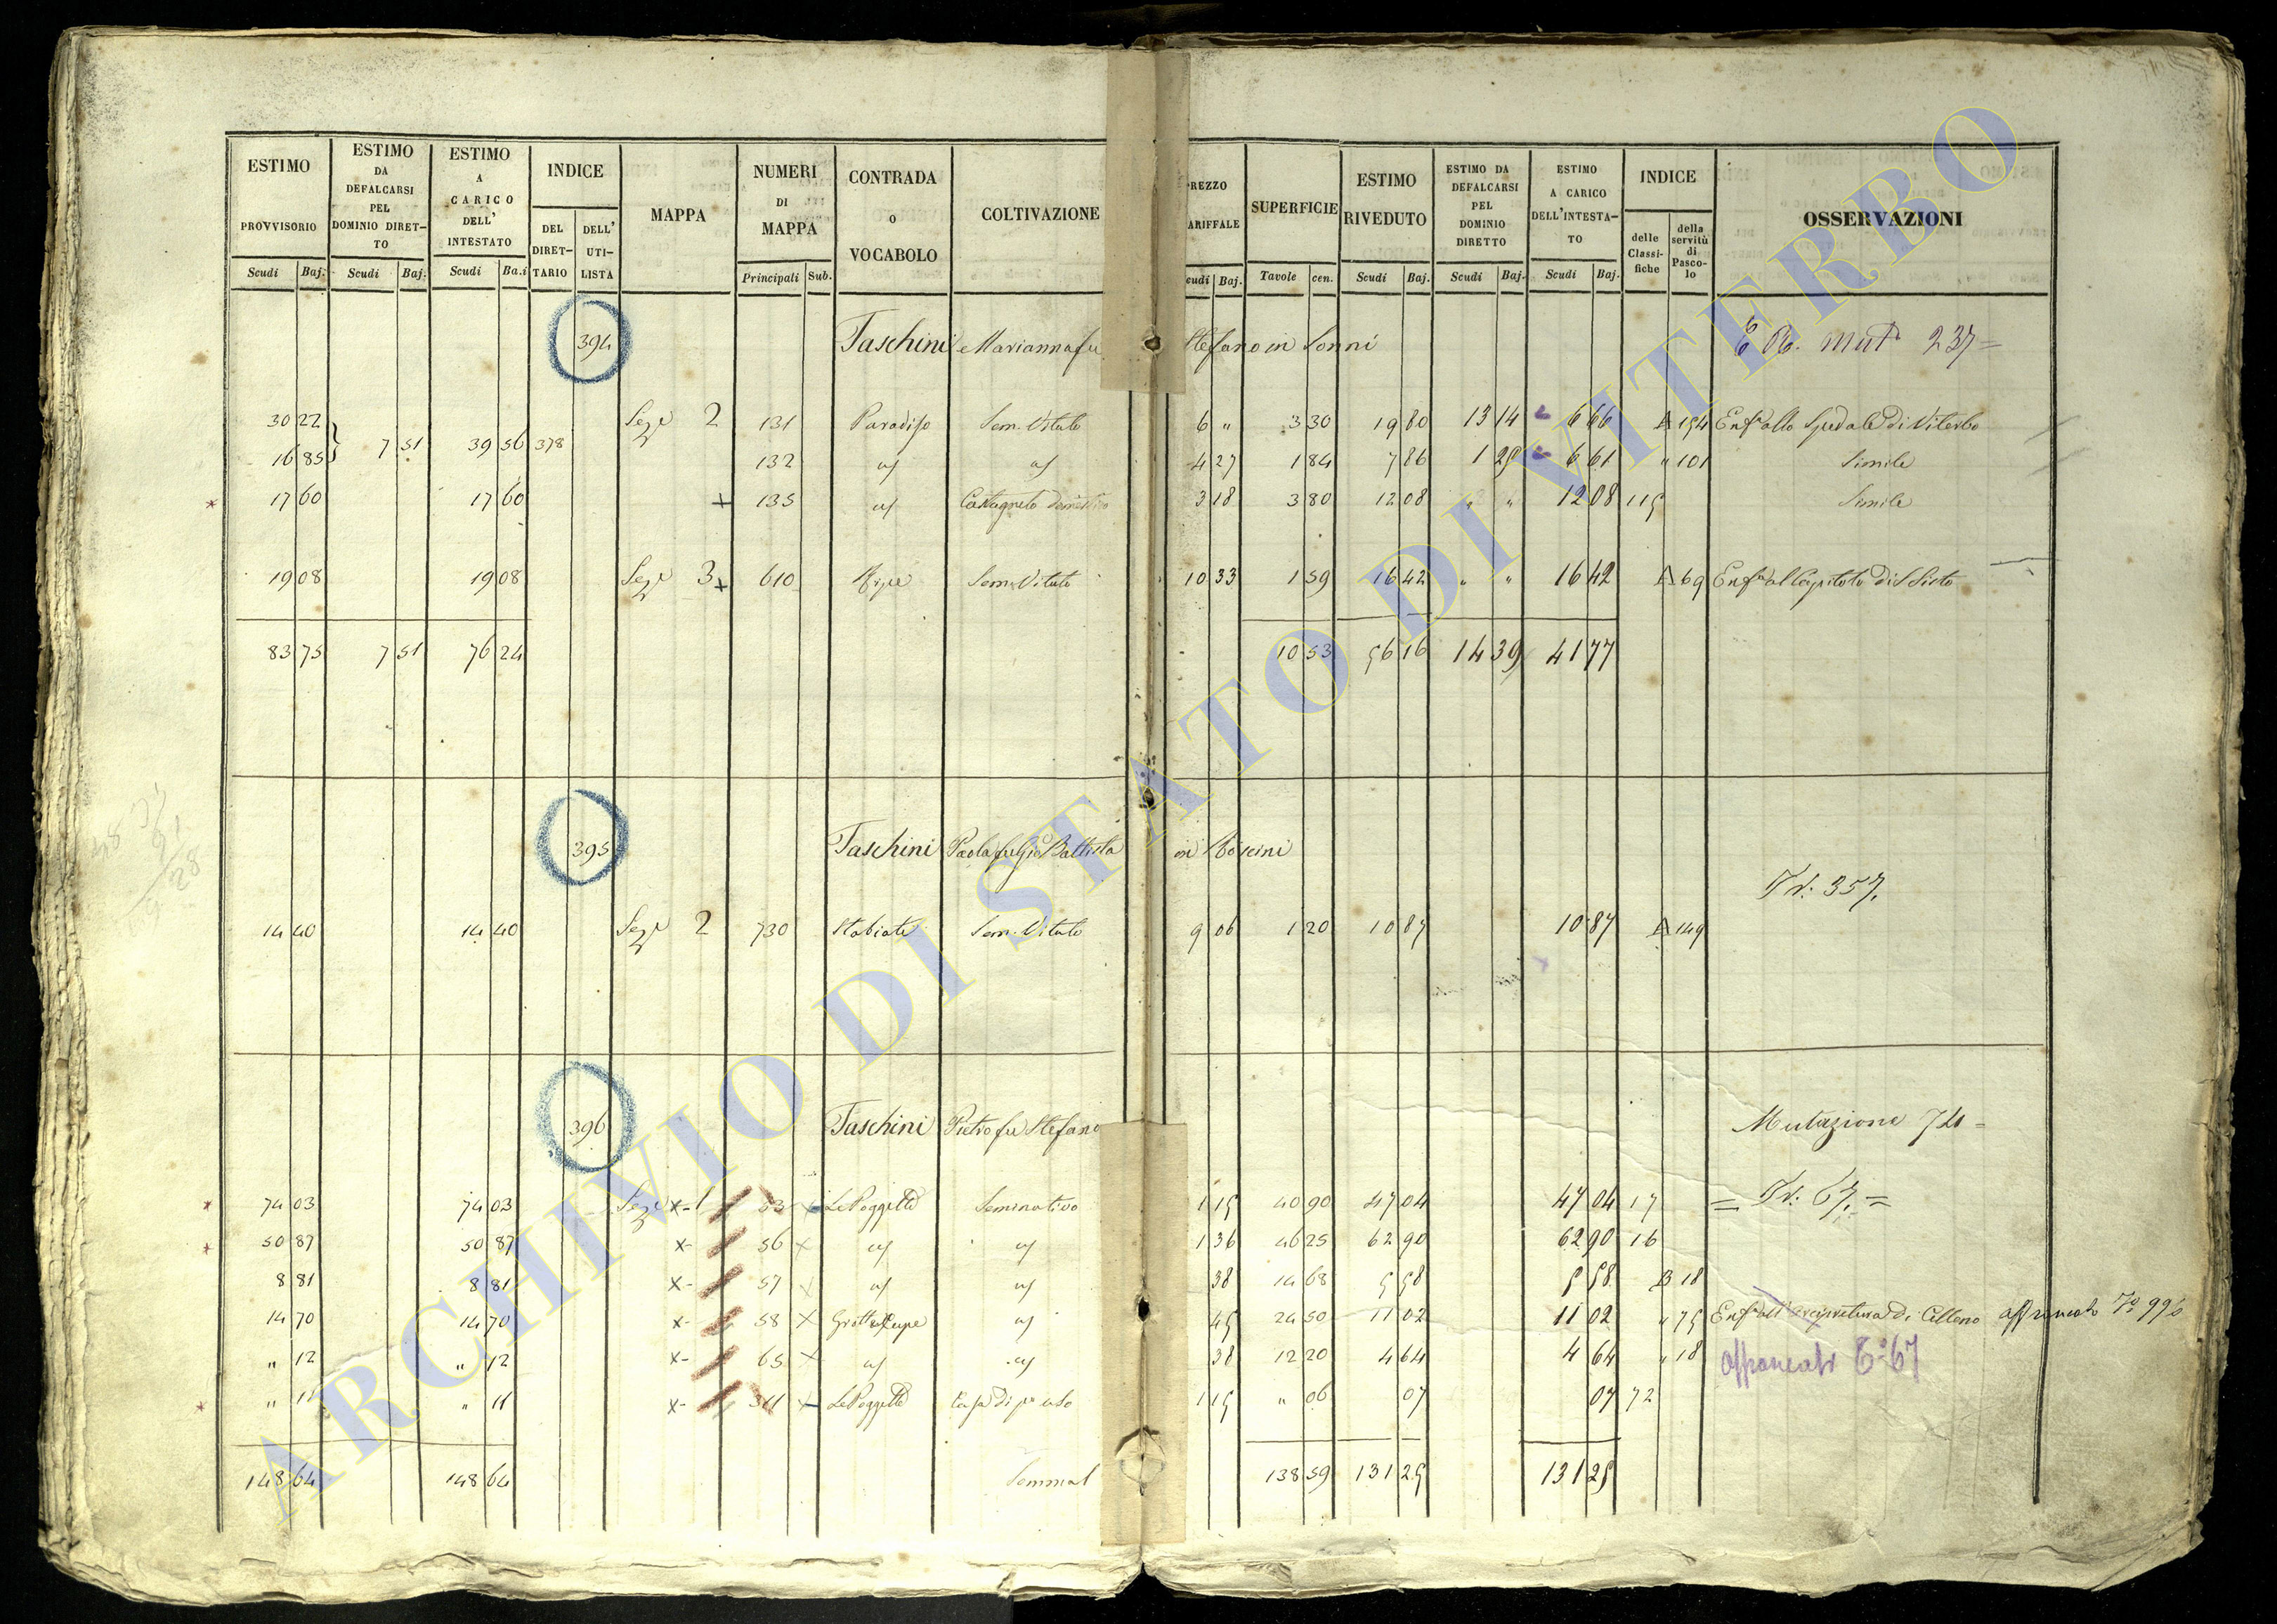 ESTIMO PROVVISORIO Scudi Baj.
ESTIMO DA DEFALCARSI PEL DOMINIO DIRET-TO Scudi Baj.
ESTIMO A CARICO DELL' INTESTATO Scudi Ba.i
INDICE DEL DIRET-TARIO DELL' UTI-LISTA
MAPPA
NUMERI DI MAPPA Principali Sub.
CONTRADA o VOCABOLO
COLTIVAZIONE
REZZO ARIFFALE cudi Baj.
SUPERFICIE Tavole cen.
ESTIMO RIVEDUTO Scudi Baj.
ESTIMO DA DEFALCARSI PEL DOMINIO DIRETTO Scudi Baj.
ESTIMO A CARICO DELL'INTESTA-TO Scudi Baj.
INDICE delle Classi-fiche della servitù di Pasco-lo
OSSERVAZIONI
394 Taschini Marianna fu Stefano in Sonni 237=
30 22 7 51 39 56 378 Sezе 2 131 Paradiso Sem. Vitato 6 " 3 30 19 80 13 14 6 66 A 154 Enfa allo Spedale di Viterbo
16 85 132 " " 4 27 1 84 7 86 1 25 6 61 " 101 Simile
17 60 17 60 + 135 " Castagneto Domestico 3 18 3 80 12 08 " " 12 08 115 Simile
19 08 19 08 Seze 3 + 610 Sem. Vitato 10 33 1 59 16 42 " " 16 42 A 69 Enfa al Capitolo di S Sisto
83 75 7 51 76 24 10 53 56 16 14 39 41 77
395 Taschini Paola fu Gio Battista in
Tr. 357.
14 40 14 40 Seze 2 730 Sem. Vitato 9 06 1 20 10 87 10 87 A 149
396 Taschini Pietro fu Stefano Mutazione 74=
74 03 74 03 Seze x- 1 53 x Le Poggette Seminativo 1 15 40 90 47 04 47 04 17 = Tr. 67. =
50 87 50 87 x- 56 x " " 1 36 46 25 62 90 62 90 16
8 81 8 81 x- 57 x " " 38 14 68 5 58 5 58 B 18
14 70 14 70 x- 58 x " 45 24 50 11 02 11 02 " 75 Enfa all'arcipretura di Celleno affrancato
" 12 " 12 x- 65 x " " 38 12 20 4 64 4 64 " 18 affrancati 67
" 11 " 11 x- 311 x Le Poggette Casa di po uso 1 15 " 06 07 07 72
148 64 148 64 Sommat 138 59 131 25 131 25
ARCHIVIO DI STATO DI VITERBO